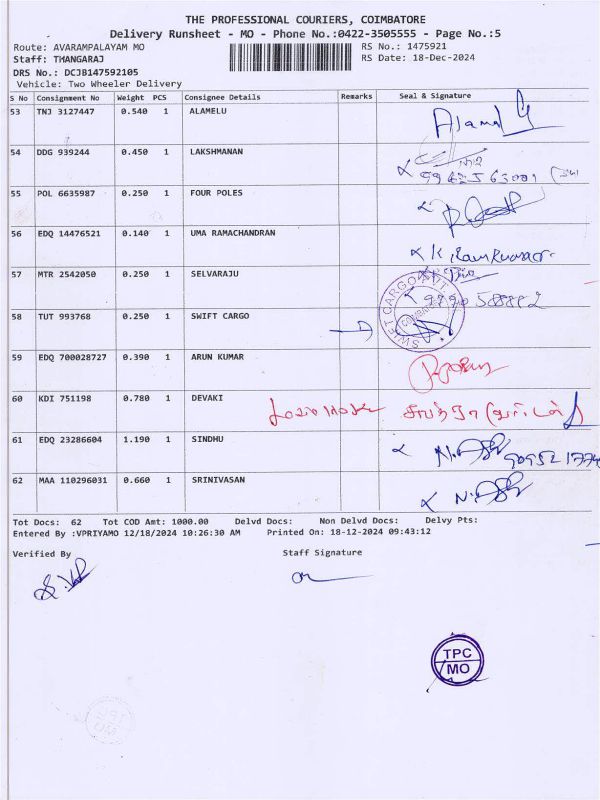 THE PROFESSIONAL COURIERS, COIMBATORE
Delivery Runsheet - MO - Phone No.:0422-3505555 - Page No.:5
Route: AVARAMPALAYAM MO RS No.: 1475921
Staff: THANGARAJ RS Date: 18-Dec-2024
DRS No.: DCJB147592105
Vehicle: Two Wheeler Delivery
S No Consignment No Weight PCS Consignee Details Remarks Seal & Signature
53 TNJ 3127447 0.540 1 ALAMELU
54 DDG 939244 0.450 1 LAKSHMANAN
55 POL 6635987 0.250 1 FOUR POLES
56 EDQ 14476521 0.140 1 UMA RAMACHANDRAN
K. Ramkumar
57 MTR 2542050 0.250 1 SELVARAJU
58 TUT 993768 0.250 1 SWIFT CARGO
SWIFT CARGO PVT.
59 EDQ 700028727 0.390 1 ARUN KUMAR
60 KDI 751198 0.780 1 DEVAKI
61 EDQ 23286604 1.190 1 SINDHU
62 MAA 110296031 0.660 1 SRINIVASAN
Tot Docs: 62 Tot COD Amt: 1000.00 Delvd Docs: Non Delvd Docs: Delvy Pts:
Entered By :VPRIYAMO 12/18/2024 10:26:30 AM Printed On: 18-12-2024 09:43:12
Verified By Staff Signature
TPC
MO